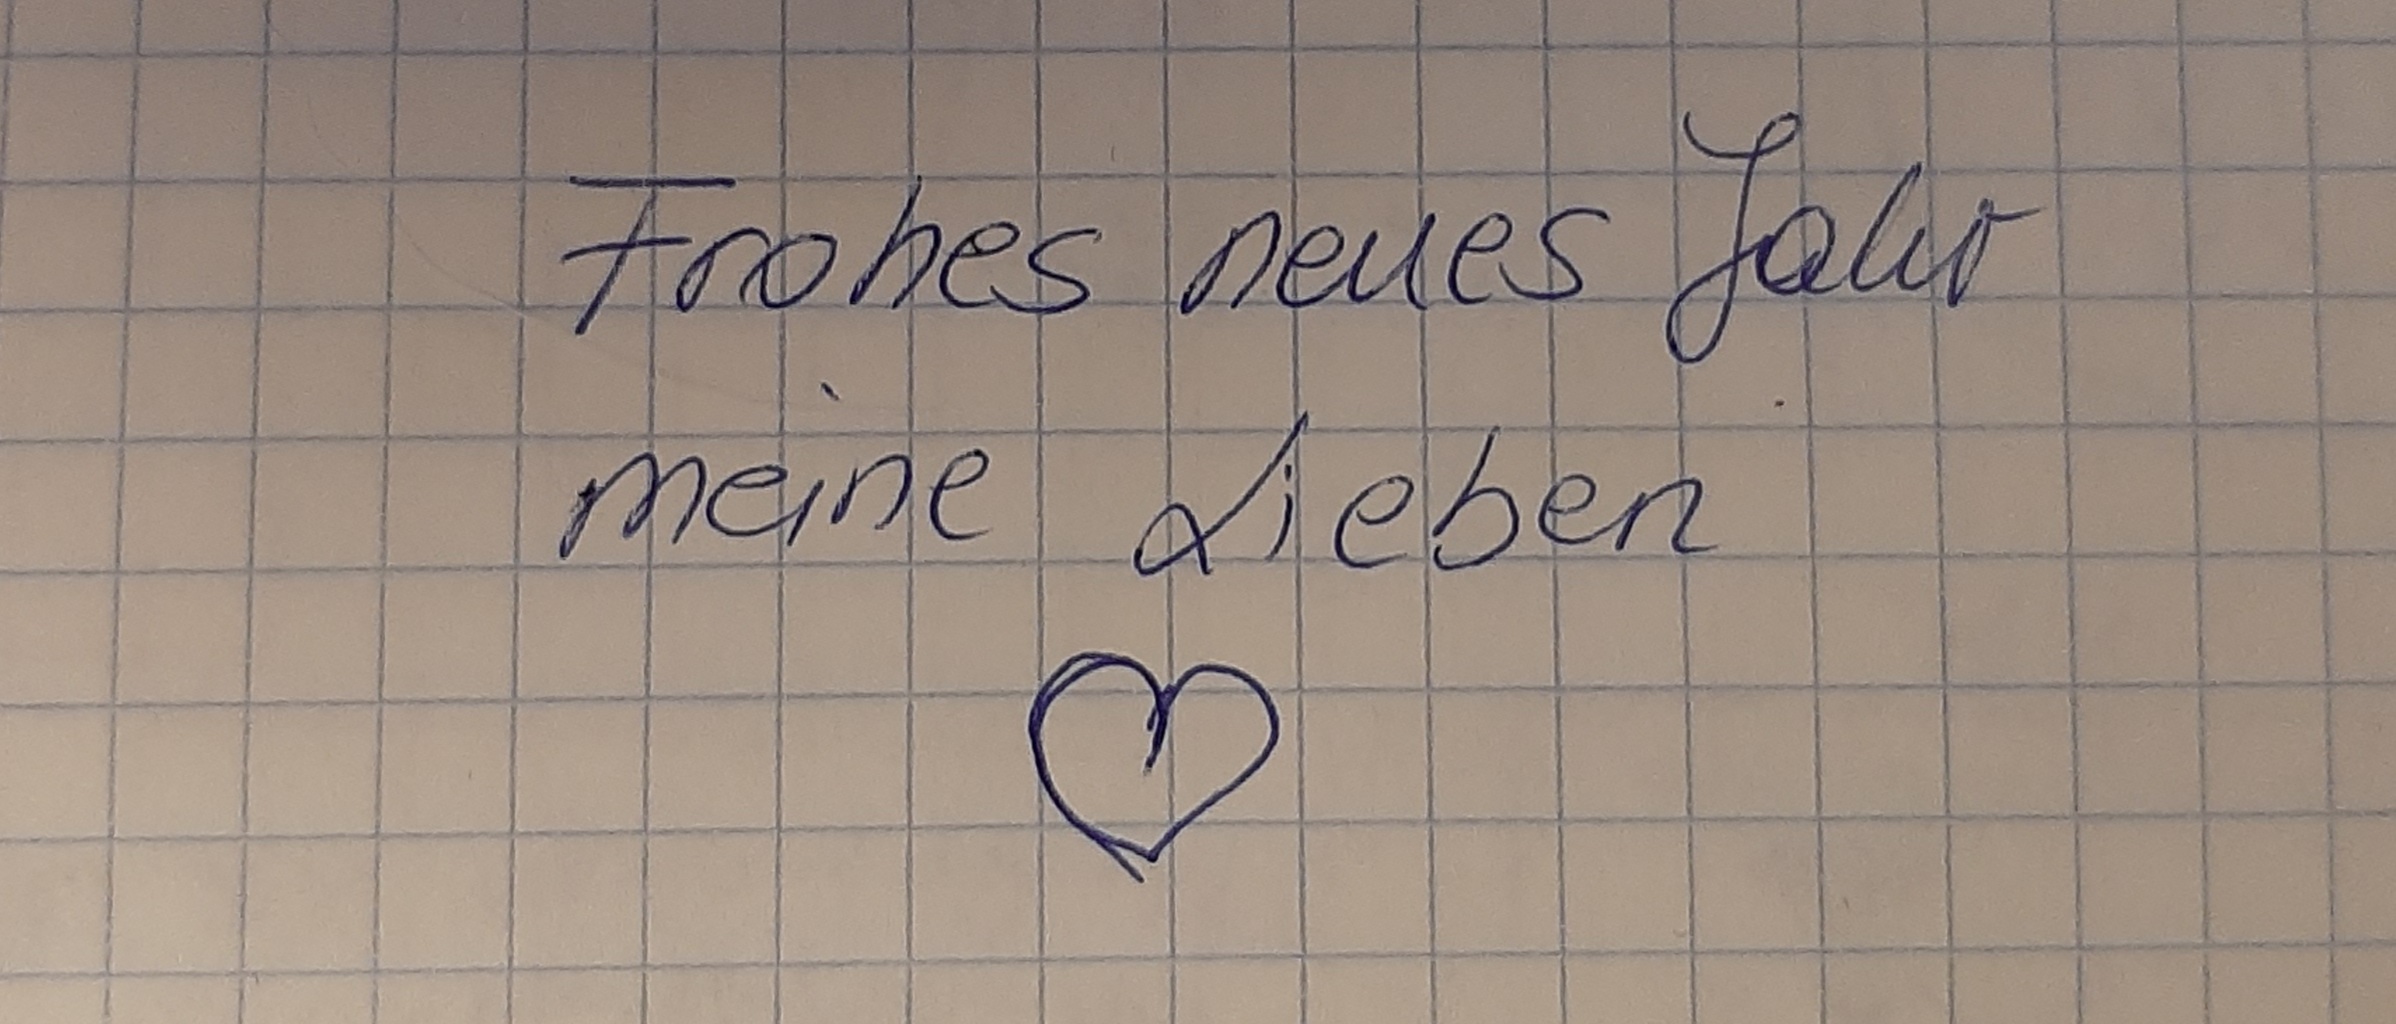 Frohes neues Jahr
meine Lieben